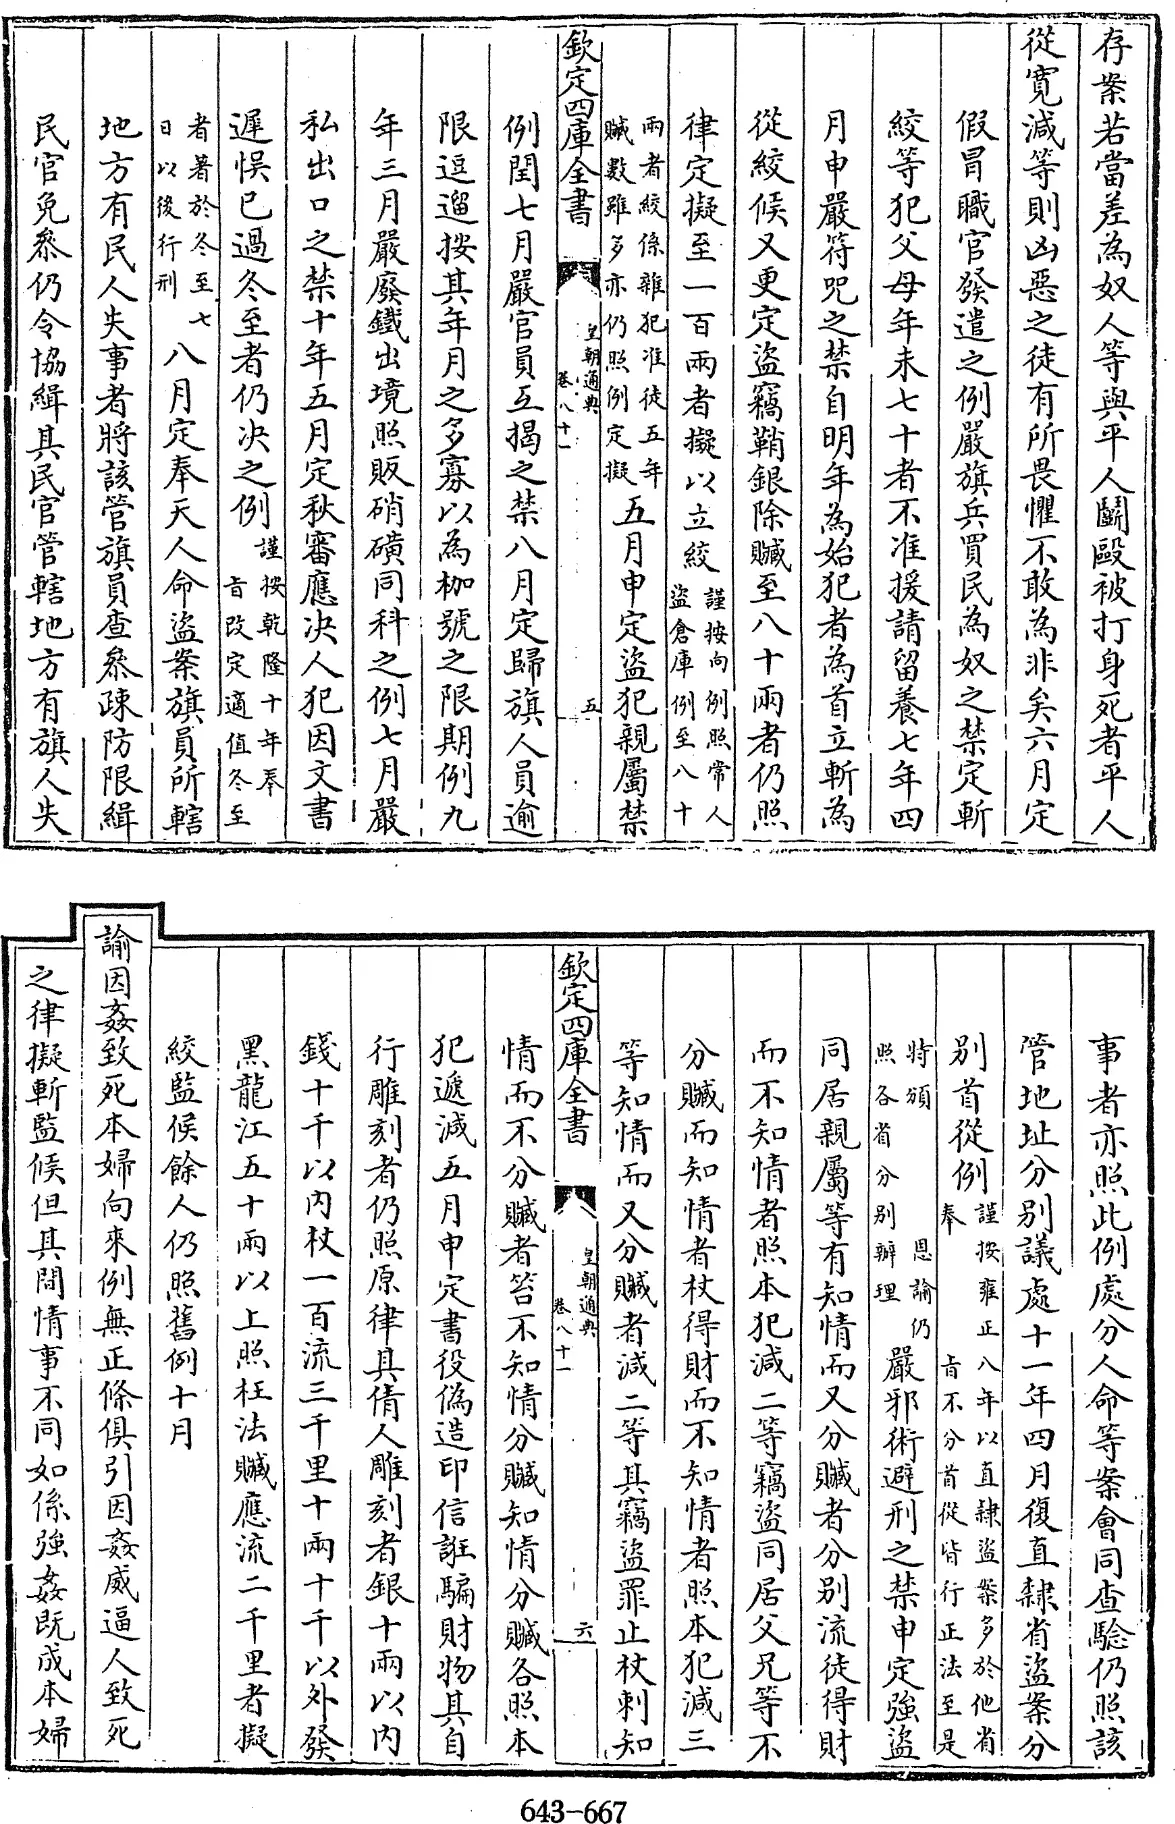 存案若當差為奴人等與平人鬬毆被打身死者平人
從寛減等則凶惡之徒有所畏懼不敢為非矣六月定
假冒職官發遣之例嚴旗兵買民為奴之禁定斬
絞等犯父母年未七十者不准援請留養七年四
月申嚴符咒之禁自明年為始犯者為首立斬為
從絞候又更定盜竊鞘銀除贓至八十兩者仍照
律定擬至一百兩者擬以立絞謹按向例照常人
盜倉庫例至八十
兩者絞係雜犯准徒五年
贓數雖多亦仍照例定擬五月申定盜犯親屬禁
欽定四庫全書 皇朝通典 卷八十一 五
例閏七月嚴官員互揭之禁八月定歸旗人員逾
限逗遛按其年月之多寡以為枷號之限期例九
年三月嚴廢鐵出境照販硝磺同科之例七月嚴
私出口之禁十年五月定秋審應決人犯因文書
遲悞已過冬至者仍決之例謹按乾隆十年奉
旨改定適值冬至
者著於冬至七
日以後行刑八月定奉天人命盜案旗員所轄
地方有民人失事者將該管旗員查叅疎防限緝
民官免叅仍令協緝其民官管轄地方有旗人失
事者亦照此例處分人命等案會同查驗仍照該
管地址分別議處十一年四月復直隸省盜案分
別首從例謹按雍正八年以直隸盜案多於他省
奉旨不分首從皆行正法至是
特頒恩諭仍
照各省分別辦理嚴邪術避刑之禁申定強盜
同居親屬等有知情而又分贓者分別流徒得財
而不知情者照本犯減二等竊盜同居父兄等不
分贓而知情者杖得財而不知情者照本犯減三
等知情而又分贓者減二等其竊盜罪止杖刺知
欽定四庫全書 皇朝通典 卷八十一 六
情而不分贓者笞不知情分贓知情分贓各照本
犯遞減五月申定書役偽造印信誆騙財物其自
行雕刻者仍照原律具倩人雕刻者銀十兩以內
錢十千以內杖一百流三千里十兩十千以外發
黑龍江五十兩以上照枉法贓應流二千里者擬
絞監候餘人仍照舊例十月
諭因姦致死本婦向來例無正條俱引因姦威逼人致死
之律擬斬監候但其間情事不同如係強姦既成本婦
643-667